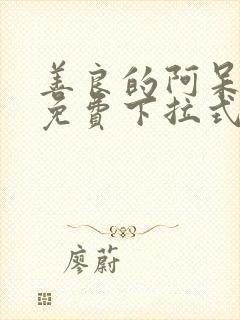 善良的阿呆
免費下拉式
廖蔚